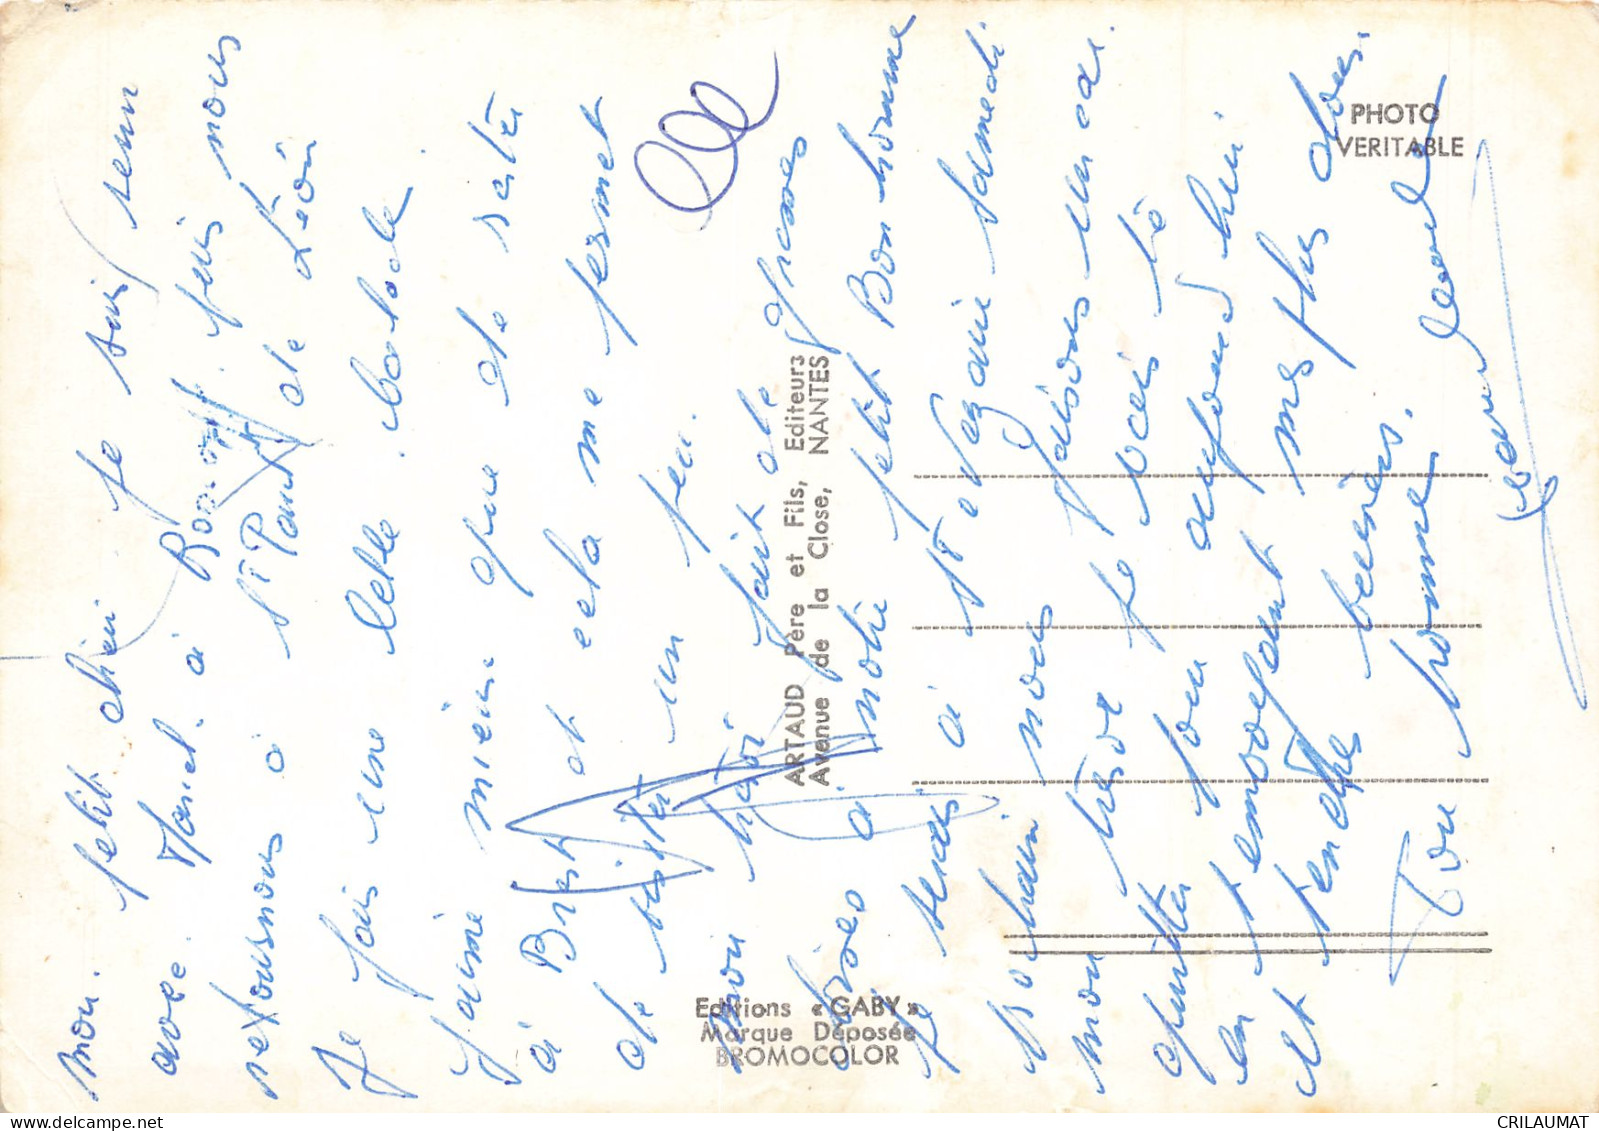 mon petit chéri je suis venu
avec Marcel à puis nous
retournons à St Paul de Léon
Je fais une belle balade.
J'aime mieux que de rester
à Brest et cela me permet
de visiter un peu.
mon trésor fait de grosses
bises à notre petit Bonhomme
je serai à St Nazaire samedi
prochain nous
mon trésor je vais te
quitter pour aujourd'hui
en t'envoyant mes plus doux
et tendres baisers.
Ton homme
PHOTO
VERITABLE
ARTAUD Père et Fils, Editeurs
Avenue de la Close, NANTES
Editions « GABY »
Marque Déposée
BROMOCOLOR
CRILAUMAT